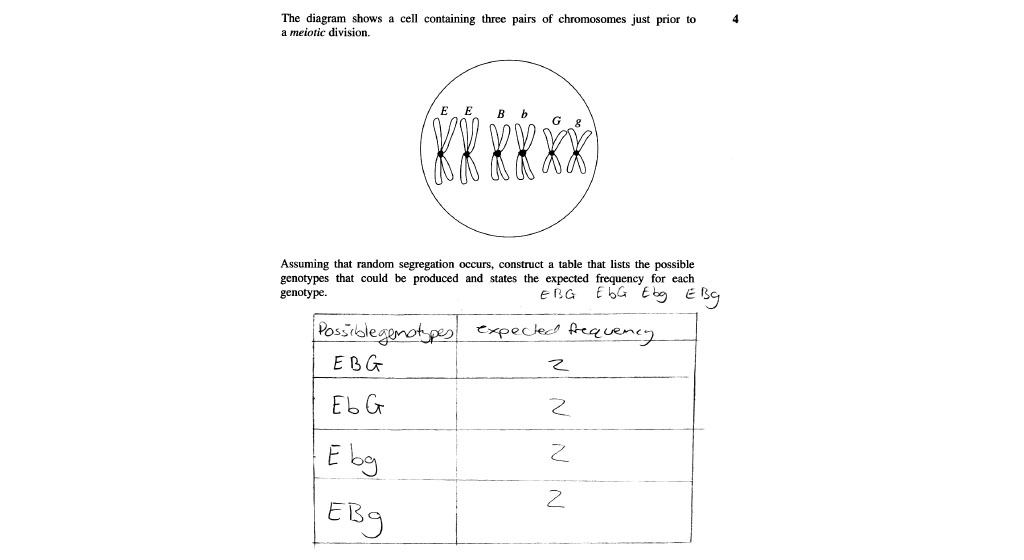 The diagram shows a cell containing three pairs of chromosomes just prior to 4
a meiotic division.
E E B b G g
Assuming that random segregation occurs, construct a table that lists the possible
genotypes that could be produced and states the expected frequency for each
genotype.
EBG EbG Ebg EBg
Possible genotypes expected frequency
EBG 2
EbG 2
Ebg 2
EBg 2